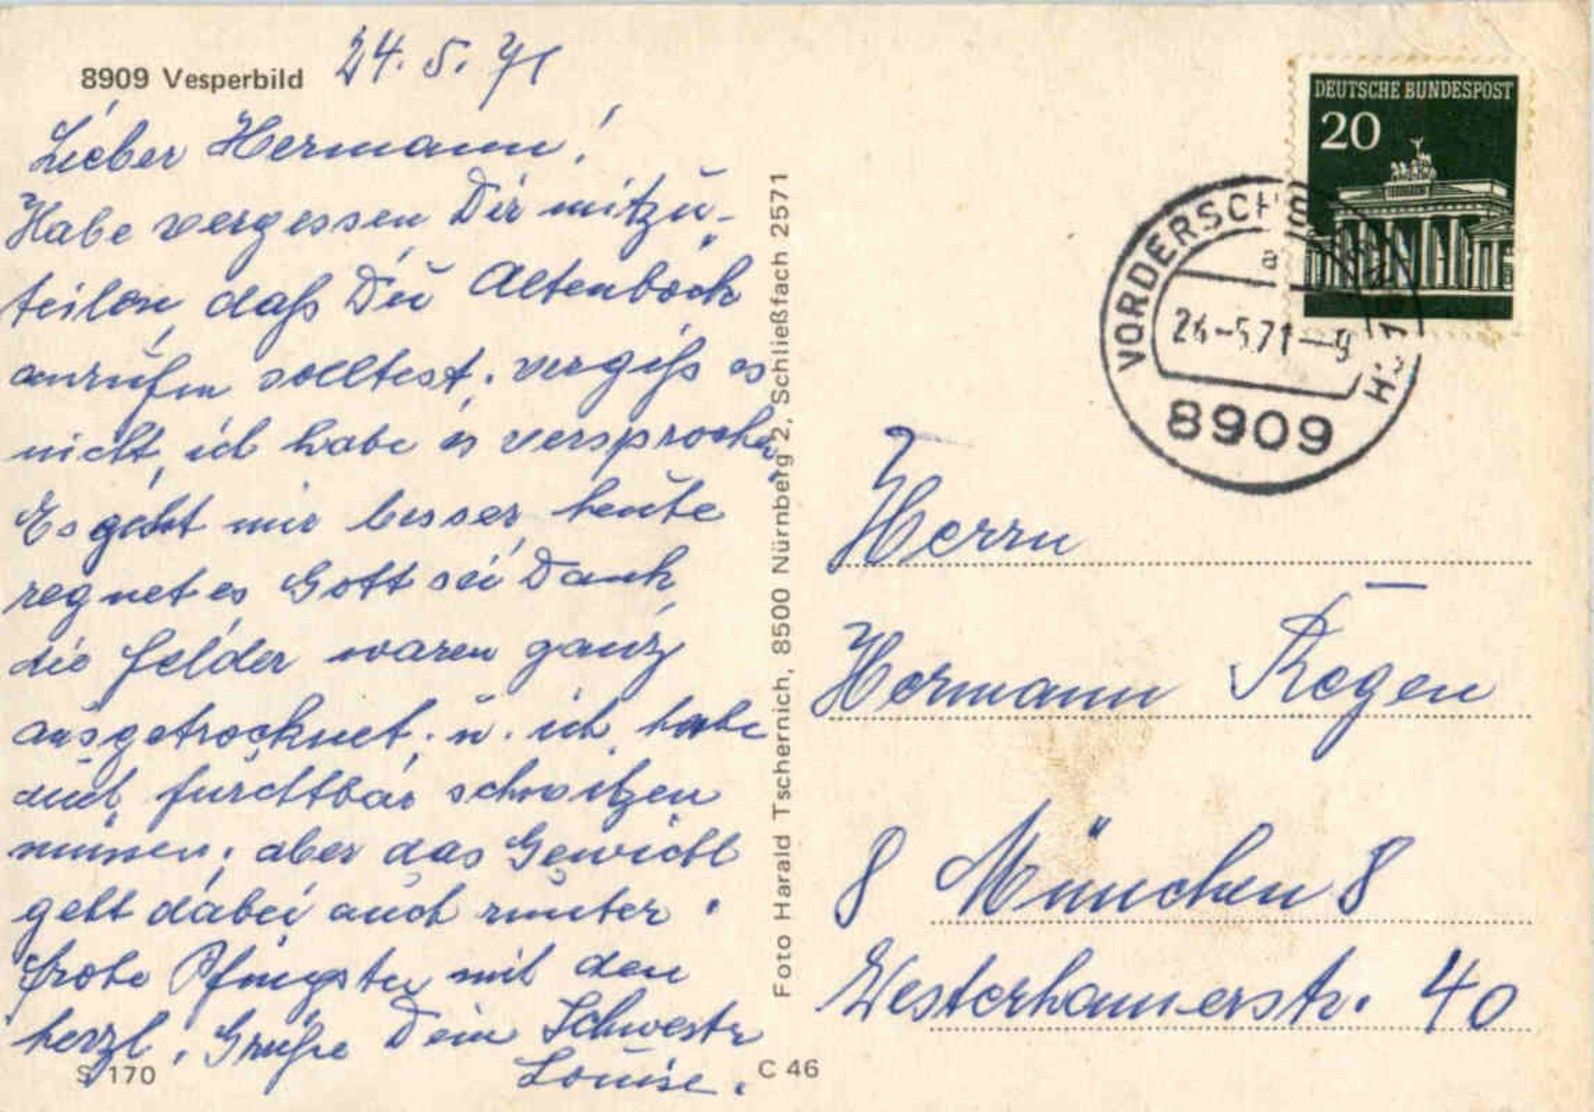 8909 Vesperbild
24. 5. 71
Lieber Hermann!
Habe vergessen Dir mitzu-
teilen, daß Du Altenböck
anrufen solltest. vergiß es
nicht, ich habe es versprochen
Es geht mir besser, heute
regnet es Gott sei Dank,
die Felder waren ganz
ausgetrocknet. u. ich habe
auch furchtbar schwitzen
müssen, aber das Gewicht
geht dabei auch runter.
Frohe Pfingsten mit den
herzl. Grüße Dein Schwester
Louise.
S 170
C 46
Foto Harald Tschernich, 8500 Nürnberg 2, Schließfach 2571
DEUTSCHE BUNDESPOST
20
a
-5.71-9
8909
Herrn
Hermann Regen
8 München 8
Westerhamerstr. 40